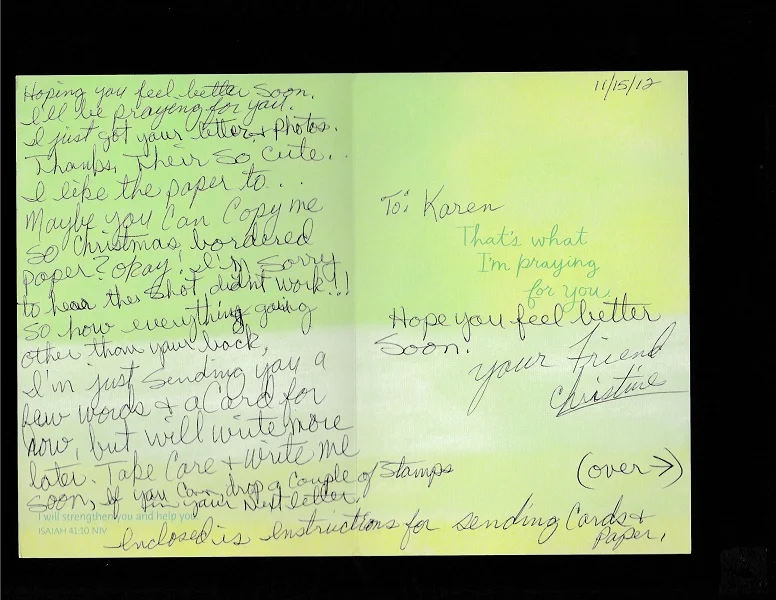 Hoping you feel better soon.
I'll be praying for you.
I just got your letter, + photos.
Thanks, Their So cute. .
I like the paper to. . .
Maybe you can copy me
so Christmas bordered
paper? okay! I'm sorry
to hear the shot didn't work!!!
So how everything going
other than your back,
I'm just sending you a
few words & a Card for
now, but will write more
later. Take Care + write me
soon, if you can drop a couple of Stamps
in your next letter.
I will strengthen you and help you.
ISAIAH 41:10 NIV
11/15/12
To: Karen
That's what
I'm praying
for you.
Hope you feel better
Soon!
your Friend
Christine
(over→)
Enclosed is Instructions for sending Cards &
Paper.